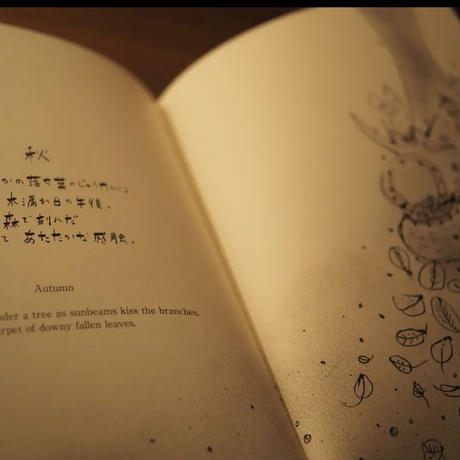 秋
かの落ち葉のじゅうたんに
木漏れ日の午後。
森で刻んだ
て あたたかな感触。
Autumn
under a tree as sunbeams kiss the branches,
carpet of downy fallen leaves.